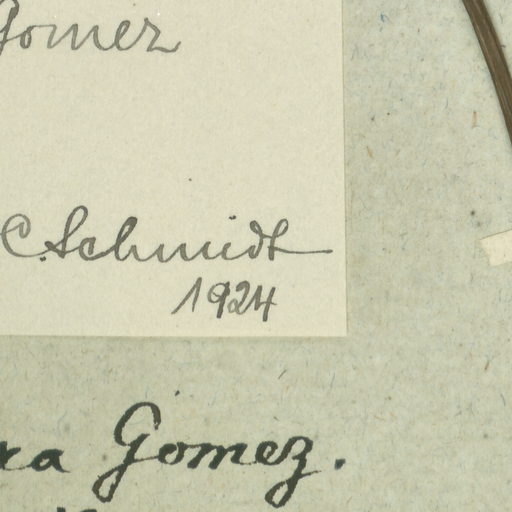 Gomez
C. Schmidt
1924
ra Gomez.